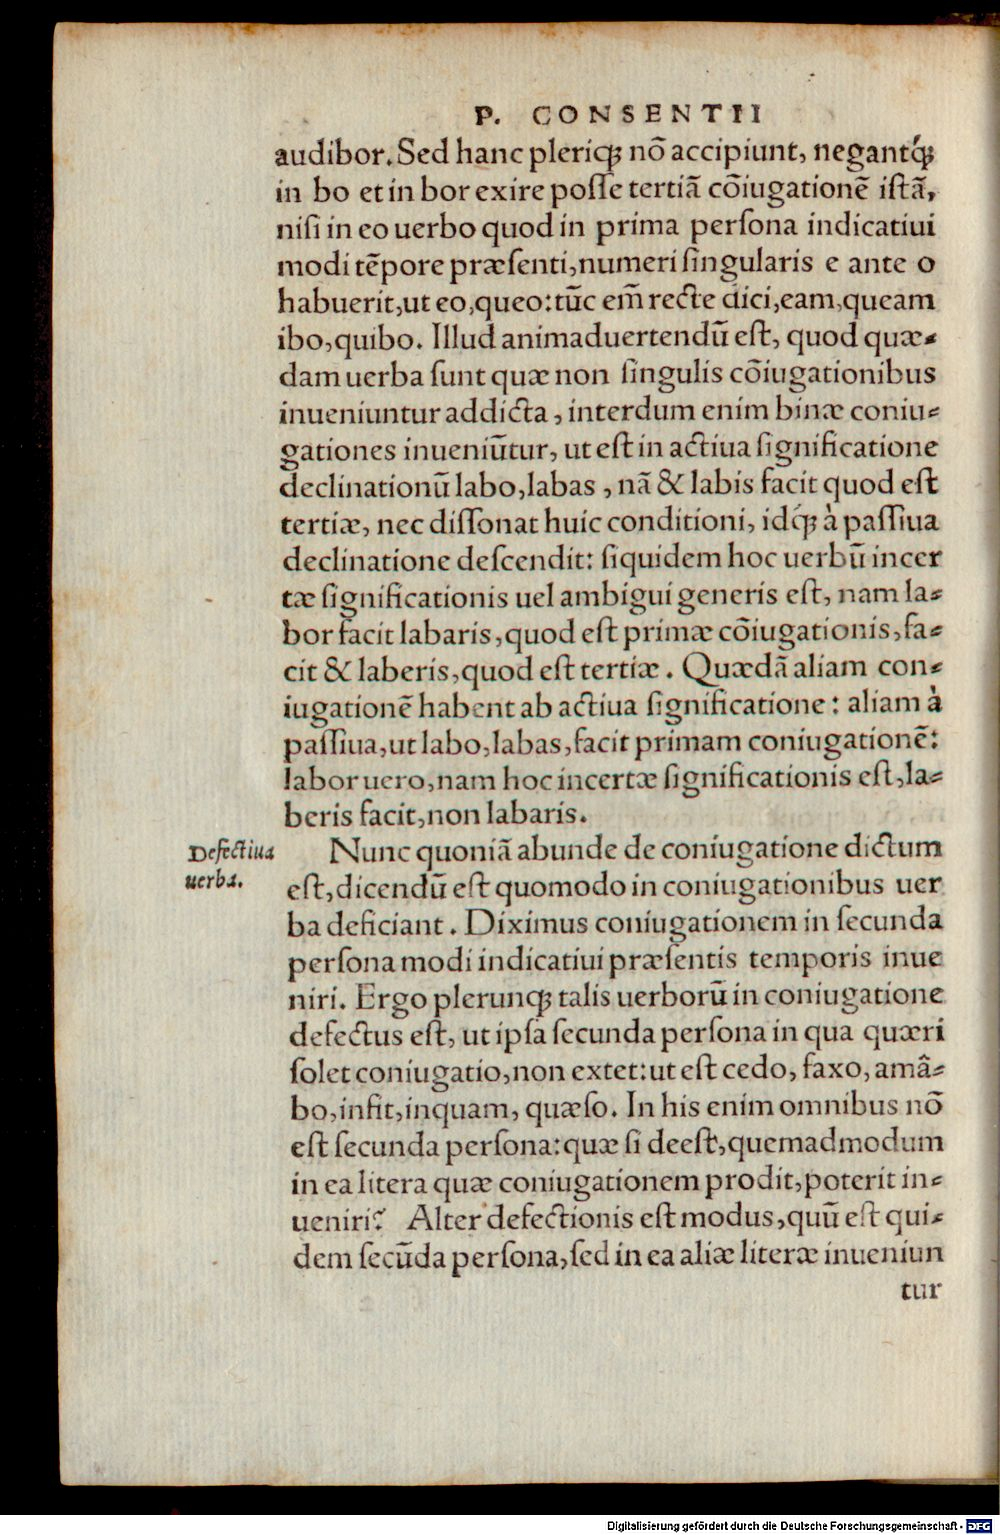 P. CONSENTII
audibor. Sed hanc pleriq́ꝫ nō accipiunt, negantq́ꝫ
in bo et in bor exire poſſe tertiā cōiugationē iſtā,
niſi in eo uerbo quod in prima perſona indicatiui
modi tēpore præſenti, numeri ſingularis e ante o
habuerit, ut eo, queo: tūc em̄ recte dici, eam, queam
ibo, quibo. Illud animaduertendū eſt, quod quæ-
dam uerba ſunt quæ non ſingulis cōiugationibus
inueniuntur addicta, interdum enim binæ coniu-
gationes inueniūtur, ut eſt in actiua ſignificatione
declinationū labo, labas, nā & labis facit quod eſt
tertiæ, nec diſſonat huic conditioni, idq́ꝫ à paſſiua
declinatione deſcendit: ſiquidem hoc uerbū incer
tæ ſignificationis uel ambigui generis eſt, nam la-
bor facit labaris, quod eſt primæ cōiugationis, fa-
cit & laberis, quod eſt tertiæ. Quædā aliam con-
iugationē habent ab actiua ſignificatione: aliam à
paſſiua, ut labo, labas, facit primam coniugationē:
labor uero, nam hoc incertæ ſignificationis eſt, la-
beris facit, non labaris.
Defectiua
uerba.
Nunc quoniā abunde de coniugatione dictum
eſt, dicendū eſt quomodo in coniugationibus uer
ba deficiant. Diximus coniugationem in ſecunda
perſona modi indicatiui præſentis temporis inue
niri. Ergo plerunqꝫ talis uerborū in coniugatione
defectus eſt, ut ipſa ſecunda perſona in qua quæri
ſolet coniugatio, non extet: ut eſt cedo, faxo, amâ-
bo, infit, inquam, quæſo. In his enim omnibus nō
eſt ſecunda perſona: quæ ſi deeſt, quemadmodum
in ea litera quæ coniugationem prodit, poterit in-
ueniri? Alter defectionis eſt modus, quū eſt qui-
dem ſecūda perſona, ſed in ea aliæ literæ inueniun
tur
Digitalisierung gefördert durch die Deutsche Forschungsgemeinschaft - DFG